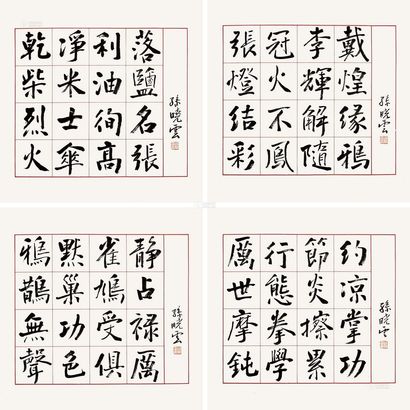 乾淨利落
柴米油鹽
烈士徇名
火傘高張
孫曉雲
張冠李戴
燈火輝煌
結不解緣
彩鳳隨鴉
孫曉雲
鴉默雀靜
鵲巢鳩占
無功受祿
聲色俱厲
孫曉雲
厲行節約
世態炎涼
摩拳擦掌
鈍學累功
孫曉雲